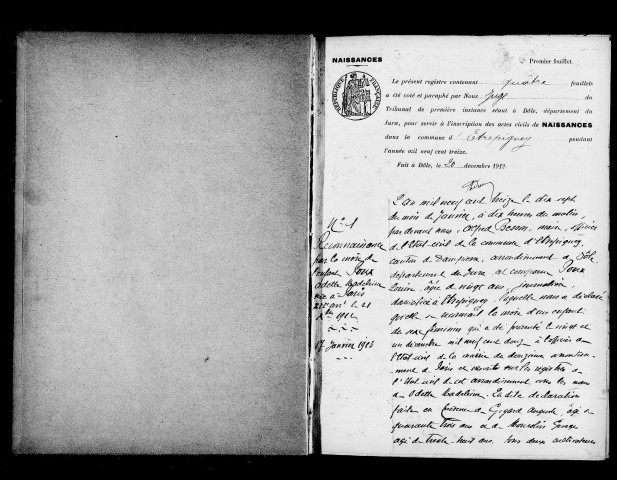 NAISSANCES
Premier feuillet.
Le présent registre contenant quatre feuillets
a été coté et paraphé par Nous Juge du
Tribunal de première instance séant à Dôle, département du
Jura, pour servir à l'inscription des actes civils de NAISSANCES
dans la commune d'Etrepigney pendant
l'année mil neuf cent treize.
Fait à Dôle, le 20 décembre 1912
RÉPUBLIQUE FRANÇAISE
N° 1
Reconnaissance
par la mère de
l'enfant Poux
Odette Madeleine
née à Paris
XIIe arrt le 21
Xbre 1912
17 Janvier 1913
L'an mil neuf cent treize le dix sept
du mois de Janvier, à dix heures du matin,
par devant nous, Alfred Besson, maire, officier
de l'Etat civil de la commune d'Etrepigney,
canton de Dampierre, arrondissement de Dôle
département du Jura, a comparu Poux
Louise âgée de vingt ans, journalière
domiciliée à Etrepigney, laquelle nous a déclaré
qu'elle se reconnait la mère d'un enfant
du sexe féminin qui a été présenté le vingt et
un décembre mil neuf cent douze à l'officier de
l'Etat civil de la mairie du douzième arrondisse-
ment de Paris et inscrite sur les registres de
l'Etat civil de cet arrondissement sous les noms
de Odette Madeleine. La dite déclaration
faite en présence de Auguste, âgé de
quarante trois ans et de Georges
âgé de trente huit ans, tous deux cultivateurs